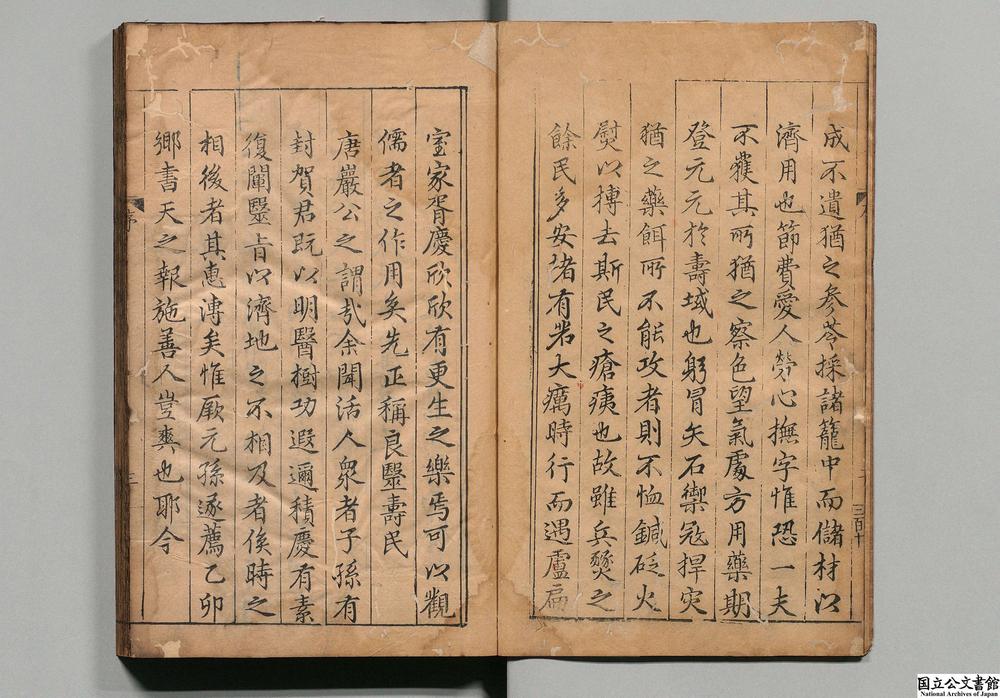 成不遺猶之參苓採諸籠中而儲材以
濟用也節費愛人勞心撫字惟恐一夫
不獲其所猶之察色望氣處方用藥期
登元元於壽域也躬冒矢石禦冦捍灾
猶之藥餌所不能攻者則不恤鍼砭火
熨以摶去斯民之瘡痍也故雖兵燹之
餘民多安堵有若大癘時行而遇盧扁
三百十
室家胥慶欣欣有更生之樂焉可以觀
儒者之作用矣先正稱良毉壽民
唐嚴公之謂哉余聞活人衆者子孫有
封賀君既以明醫樹功遐邇積慶有素
復闡毉旨以濟地之不相及者俟時之
相後者其惠溥矣惟厥元孫遂薦乙卯
鄉書天之報施善人豈爽也耶今
序
三
国立公文書館
National Archives of Japan